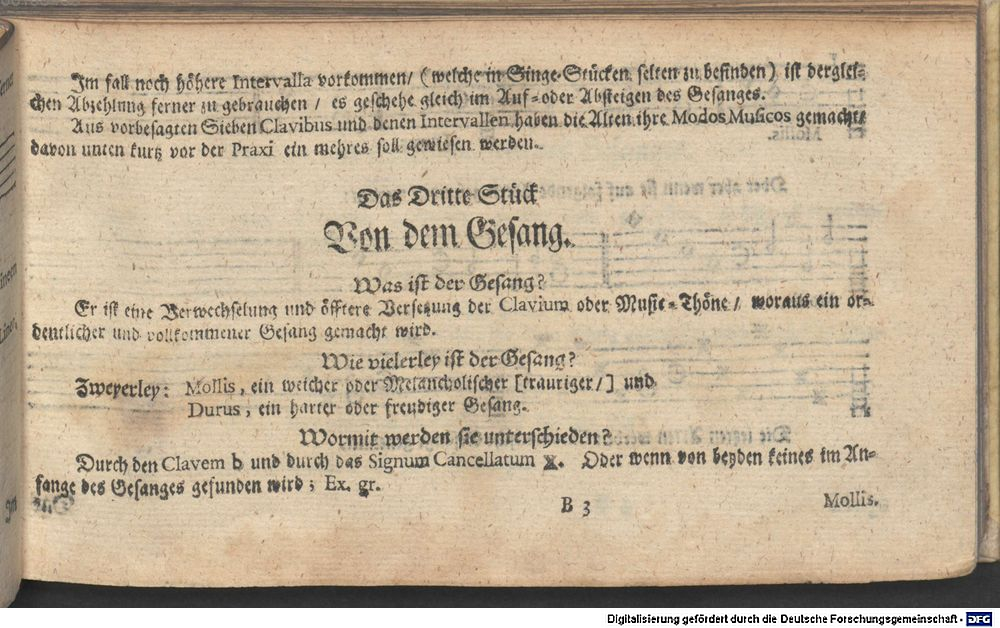 Im fall noch höhere Intervalla vorkommen/ (welche in Singe-Stücken selten zu befinden) ist derglei-
chen Abzehlung ferner zu gebrauchen / es geschehe gleich im Auf- oder Absteigen des Gesanges.
Aus vorbesagten Sieben Clavibus und denen Intervallen haben die Alten ihre Modos Musicos gemacht/
davon unten kurtz vor der Praxi ein mehres soll gewiesen werden.
Das Dritte Stück
Von dem Gesang.
Was ist der Gesang?
Er ist eine Verwechselung und öfftere Versetzung der Clavium oder Music-Thöne/ woraus ein or-
dentlicher und vollkommener Gesang gemacht wird.
Wie vielerley ist der Gesang?
Zweyerley: Mollis, ein weicher oder Melancholischer [trauriger/] und
Durus, ein harter oder freudiger Gesang.
Wormit werden sie unterschieden?
Durch den Clavem b und durch das Signum Cancellatum X. Oder wenn von beyden keines im An-
fange des Gesanges gefunden wird; Ex. gr.
B 3 Mollis.
Digitalisierung gefördert durch die Deutsche Forschungsgemeinschaft - DFG